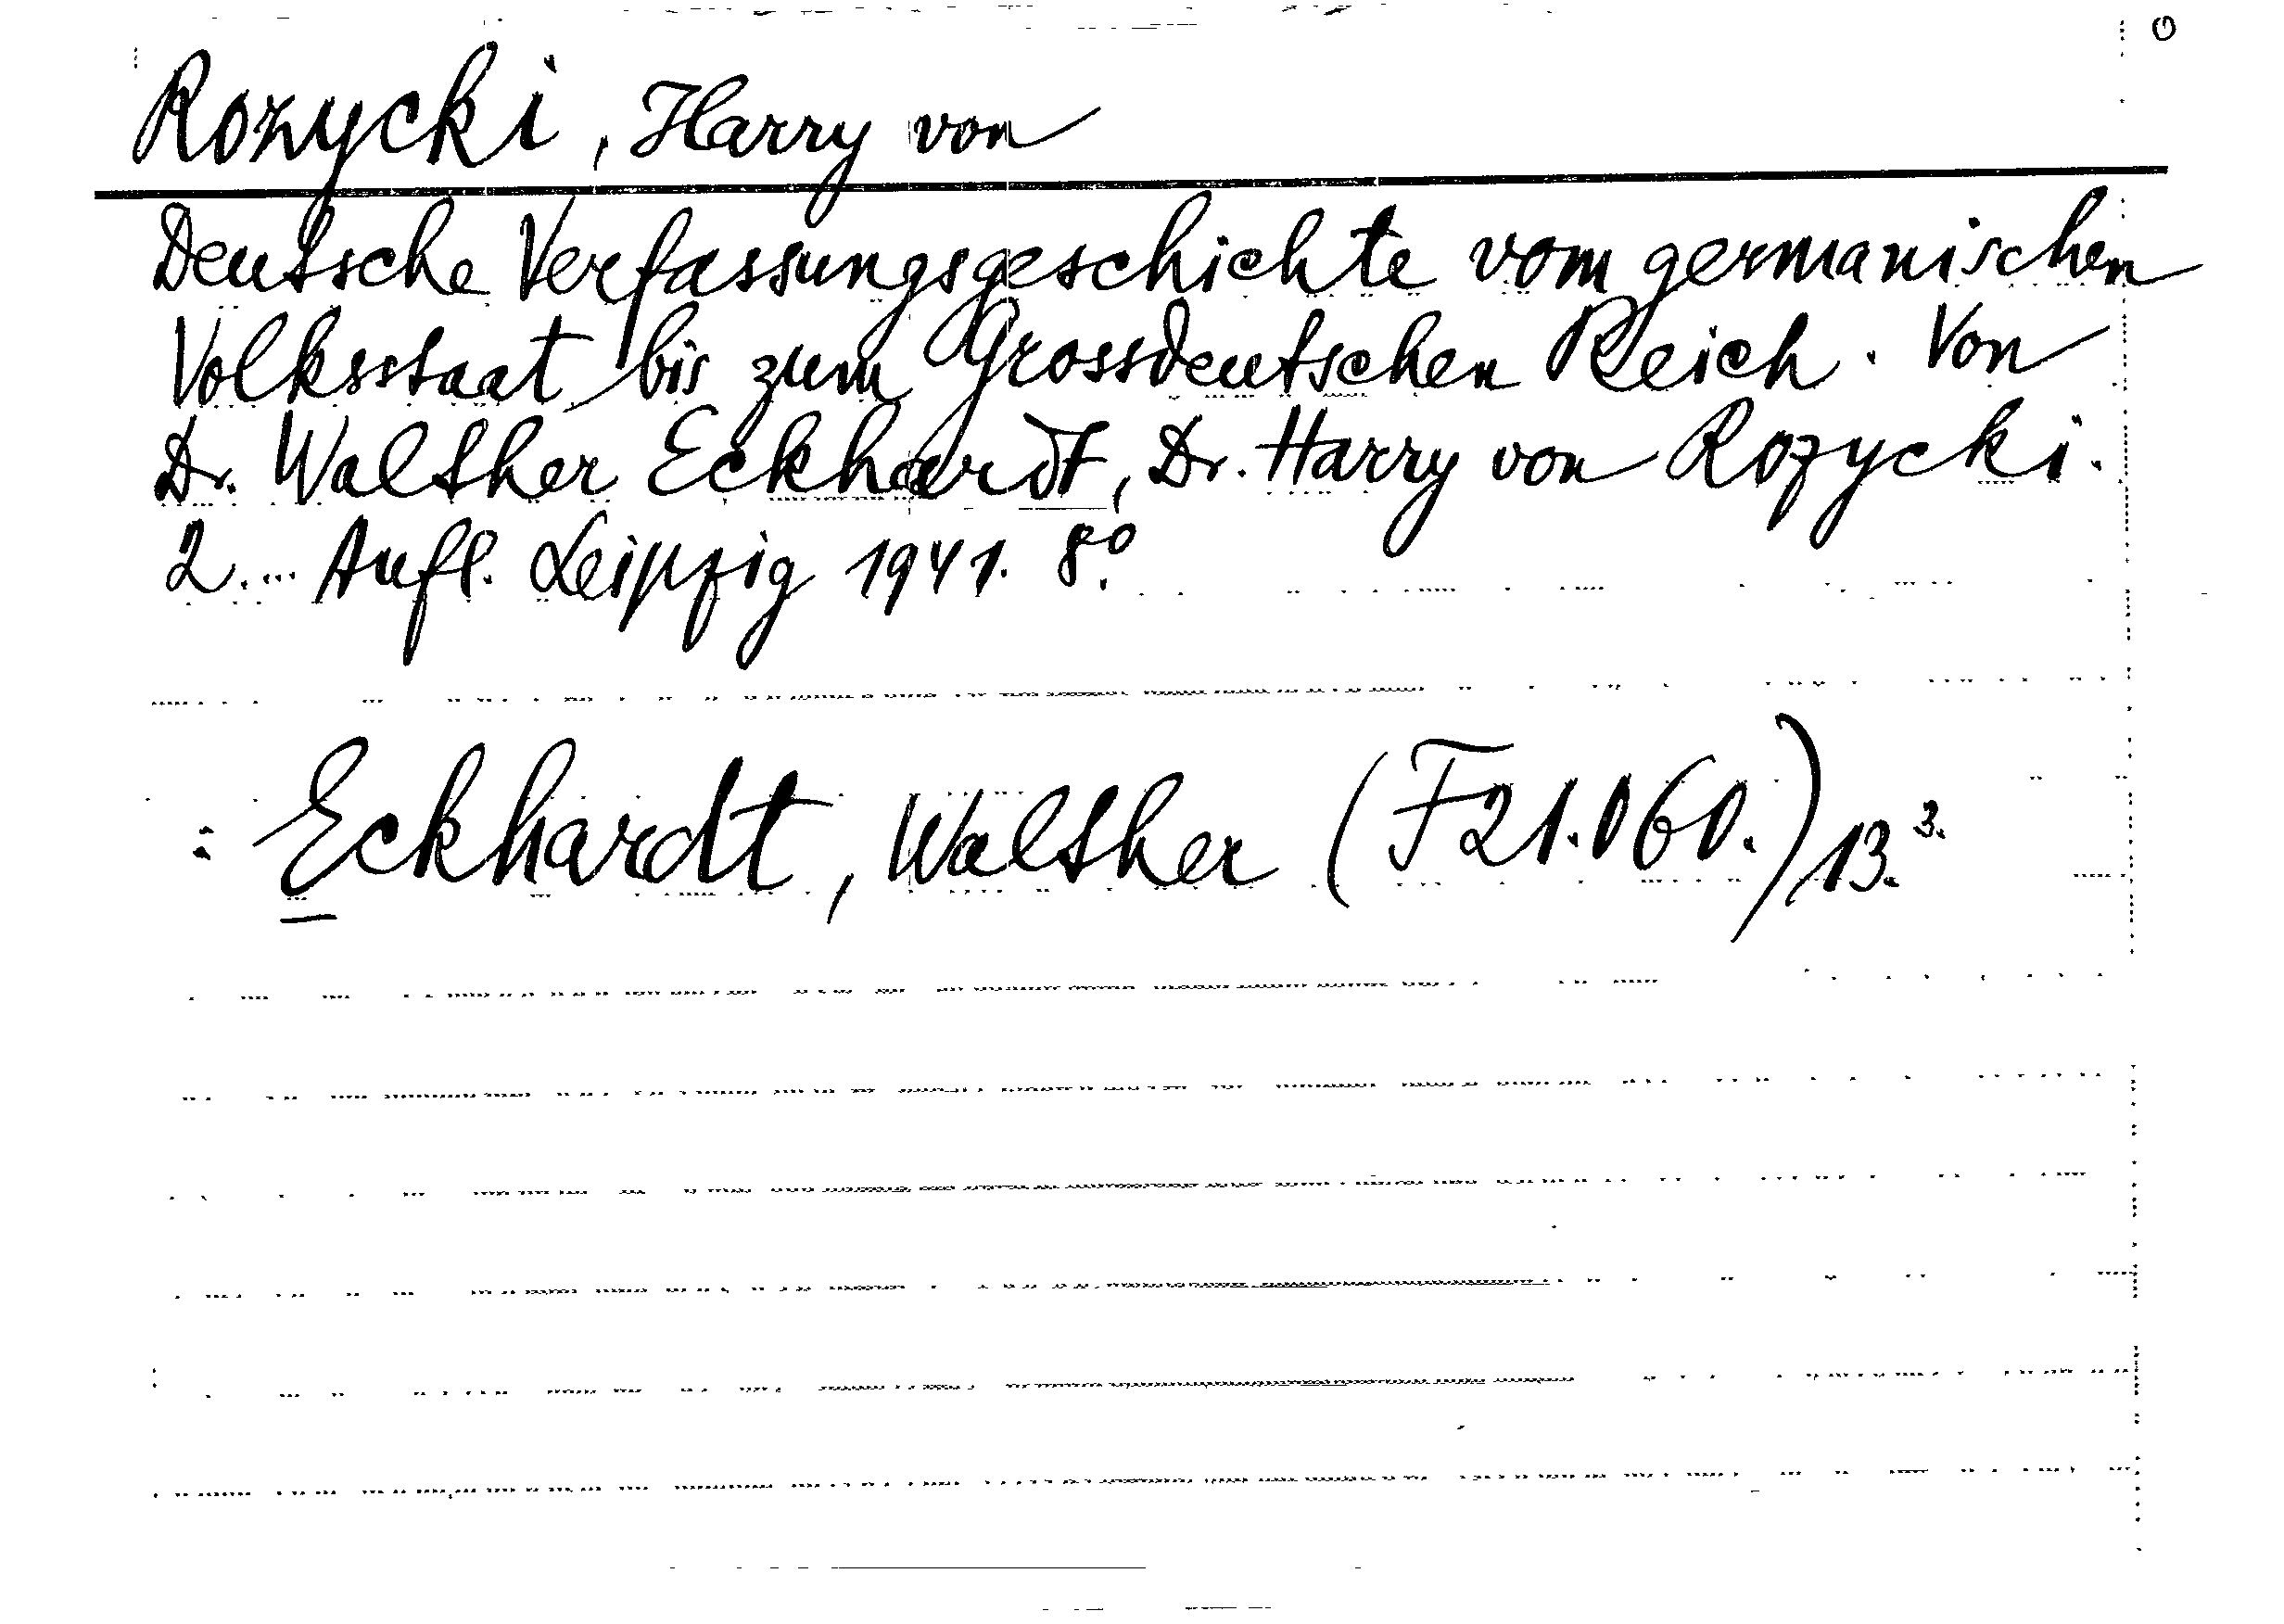 Rozycki, Harry von
Deutsche Verfassungsgeschichte vom germanischen
Volksstaat bis zum Grossdeutschen Reich. Von
Dr. Walther Eckhardt, Dr. Harry von Rozycki.
2. ... Aufl. Leipzig 1941. 8°.
= Eckhardt, Walther (F21.060.) 13.³·